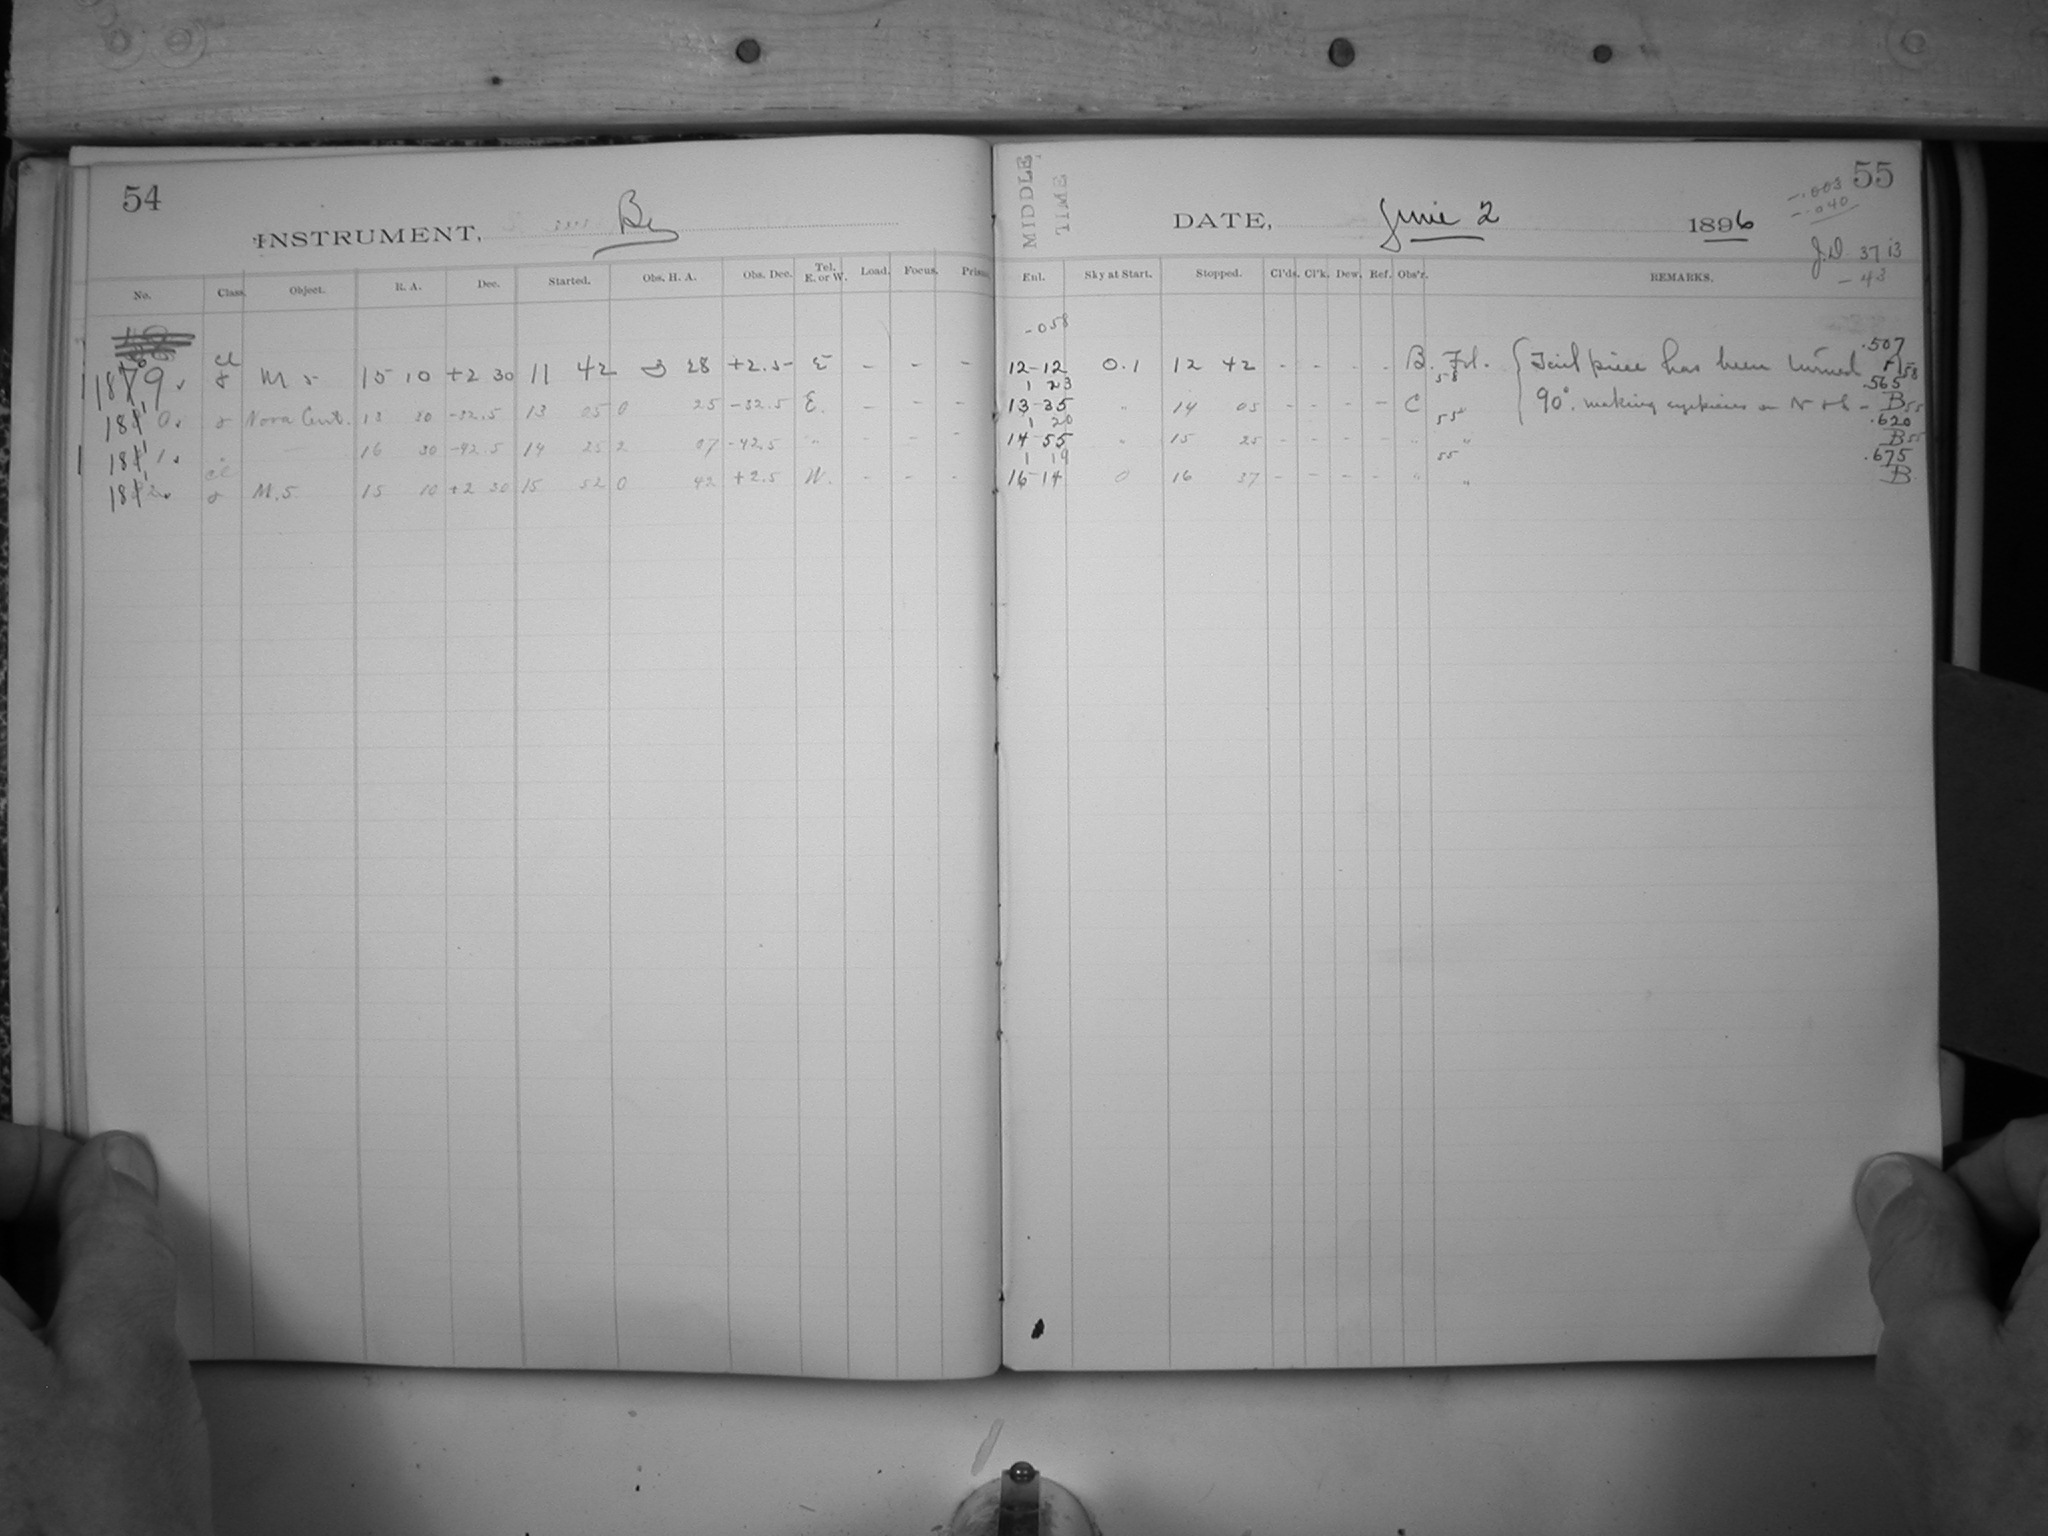 54
INSTRUMENT,
No. Class. Object. R. A. Dec. Started. Obs. H. A. Obs. Dec. Tel. E. or W. Load. Focus. Prism.
cl
8 M 5 15 10 +2 30 11 42 3 28 +2.5 E - - -
8 Nova Cent. 13 30 -32.5 13 05 0 25 -32.5 E. - - -
— 16 30 -42.5 14 25 2 07 -42.5 " - - -
cl
8 M. 5. 15 10 +2 30 15 52 0 42 +2.5 W. - - -
MIDDLE TIME
55
-.003
-.040
DATE, June 2 1896
J.D. 3713
-43
Enl. Sky at Start. Stopped. Cl'ds. Cl'k. Dew. Ref. Obs'r. REMARKS.
-058
.507
12-12 0.1 12 42 - - - - B. Fd. { Tail piece has been turned 58
1 23 58 .565
13-35 " 14 05 - - - - C 90°. making eyepieces on N + S - B 55
1 20 55 .620
14-55 " 15 25 - - - - " " B 55
1 19 55 .675
16-14 0 16 37 - - - - " " B